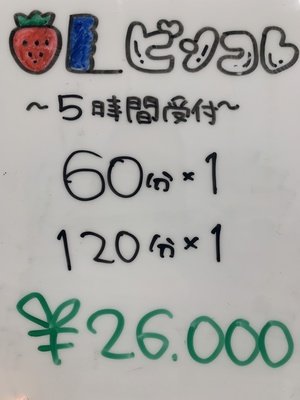 OLビンコレ
~5時間受付~
60分×1
120分×1
¥26.000